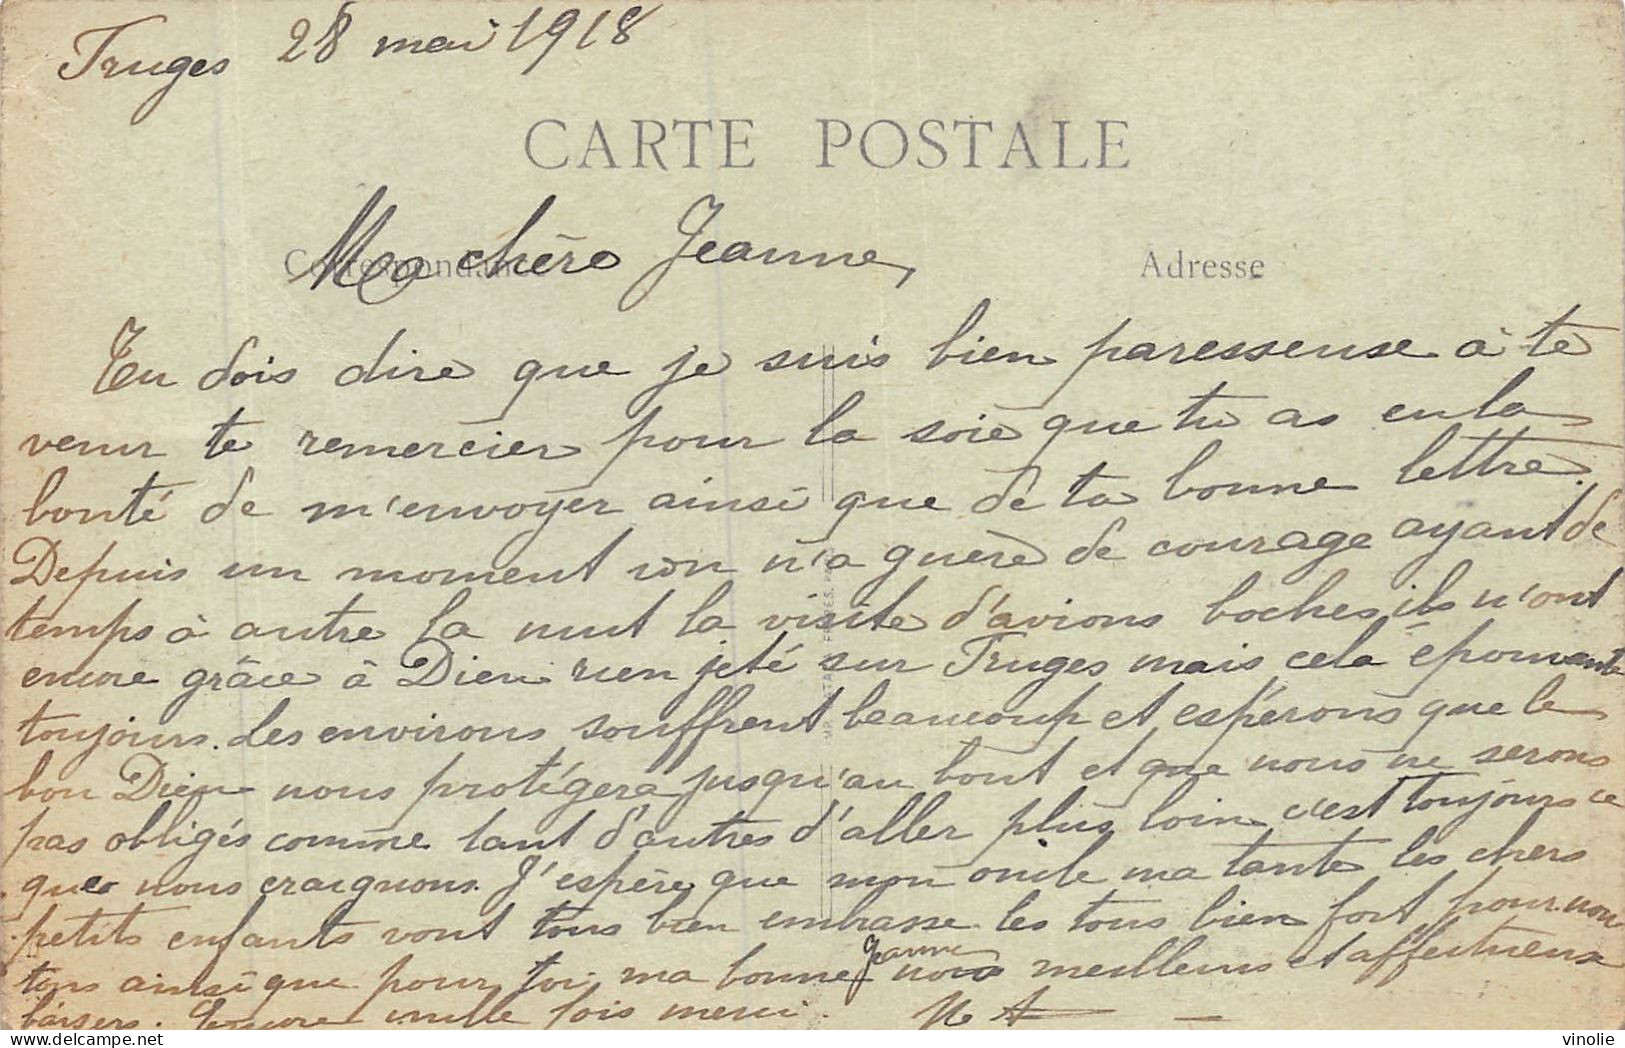 Fruges 28 mai 1918
CARTE POSTALE
Correspondance
Adresse
Ma chère Jeanne,
Tu dois dire que je suis bien paresseuse à te
venir te remercier pour la soie que tu as eu la
bonté de m'envoyer ainsi que de ta bonne lettre.
Depuis un moment l'on n'a guère de courage ayant de
temps à autre la nuit la visite d'avions boches ils n'ont
encore grâce à Dieu rien jeté sur Fruges mais cela épouvante
toujours. Les environs souffrent beaucoup et espérons que le
bon Dieu nous protégera jusqu'au bout et que nous ne serons
pas obligés comme tant d'autres d'aller plus loin c'est toujours ce
que nous craignons. J'espère que mon oncle ma tante les chers
petits enfants vont tous bien embrasse les tous bien fort pour nous
tous ainsi que pour toi ma bonne Jeanne nos meilleurs et affectueux
baisers. Encore mille fois merci. M A
vinolie